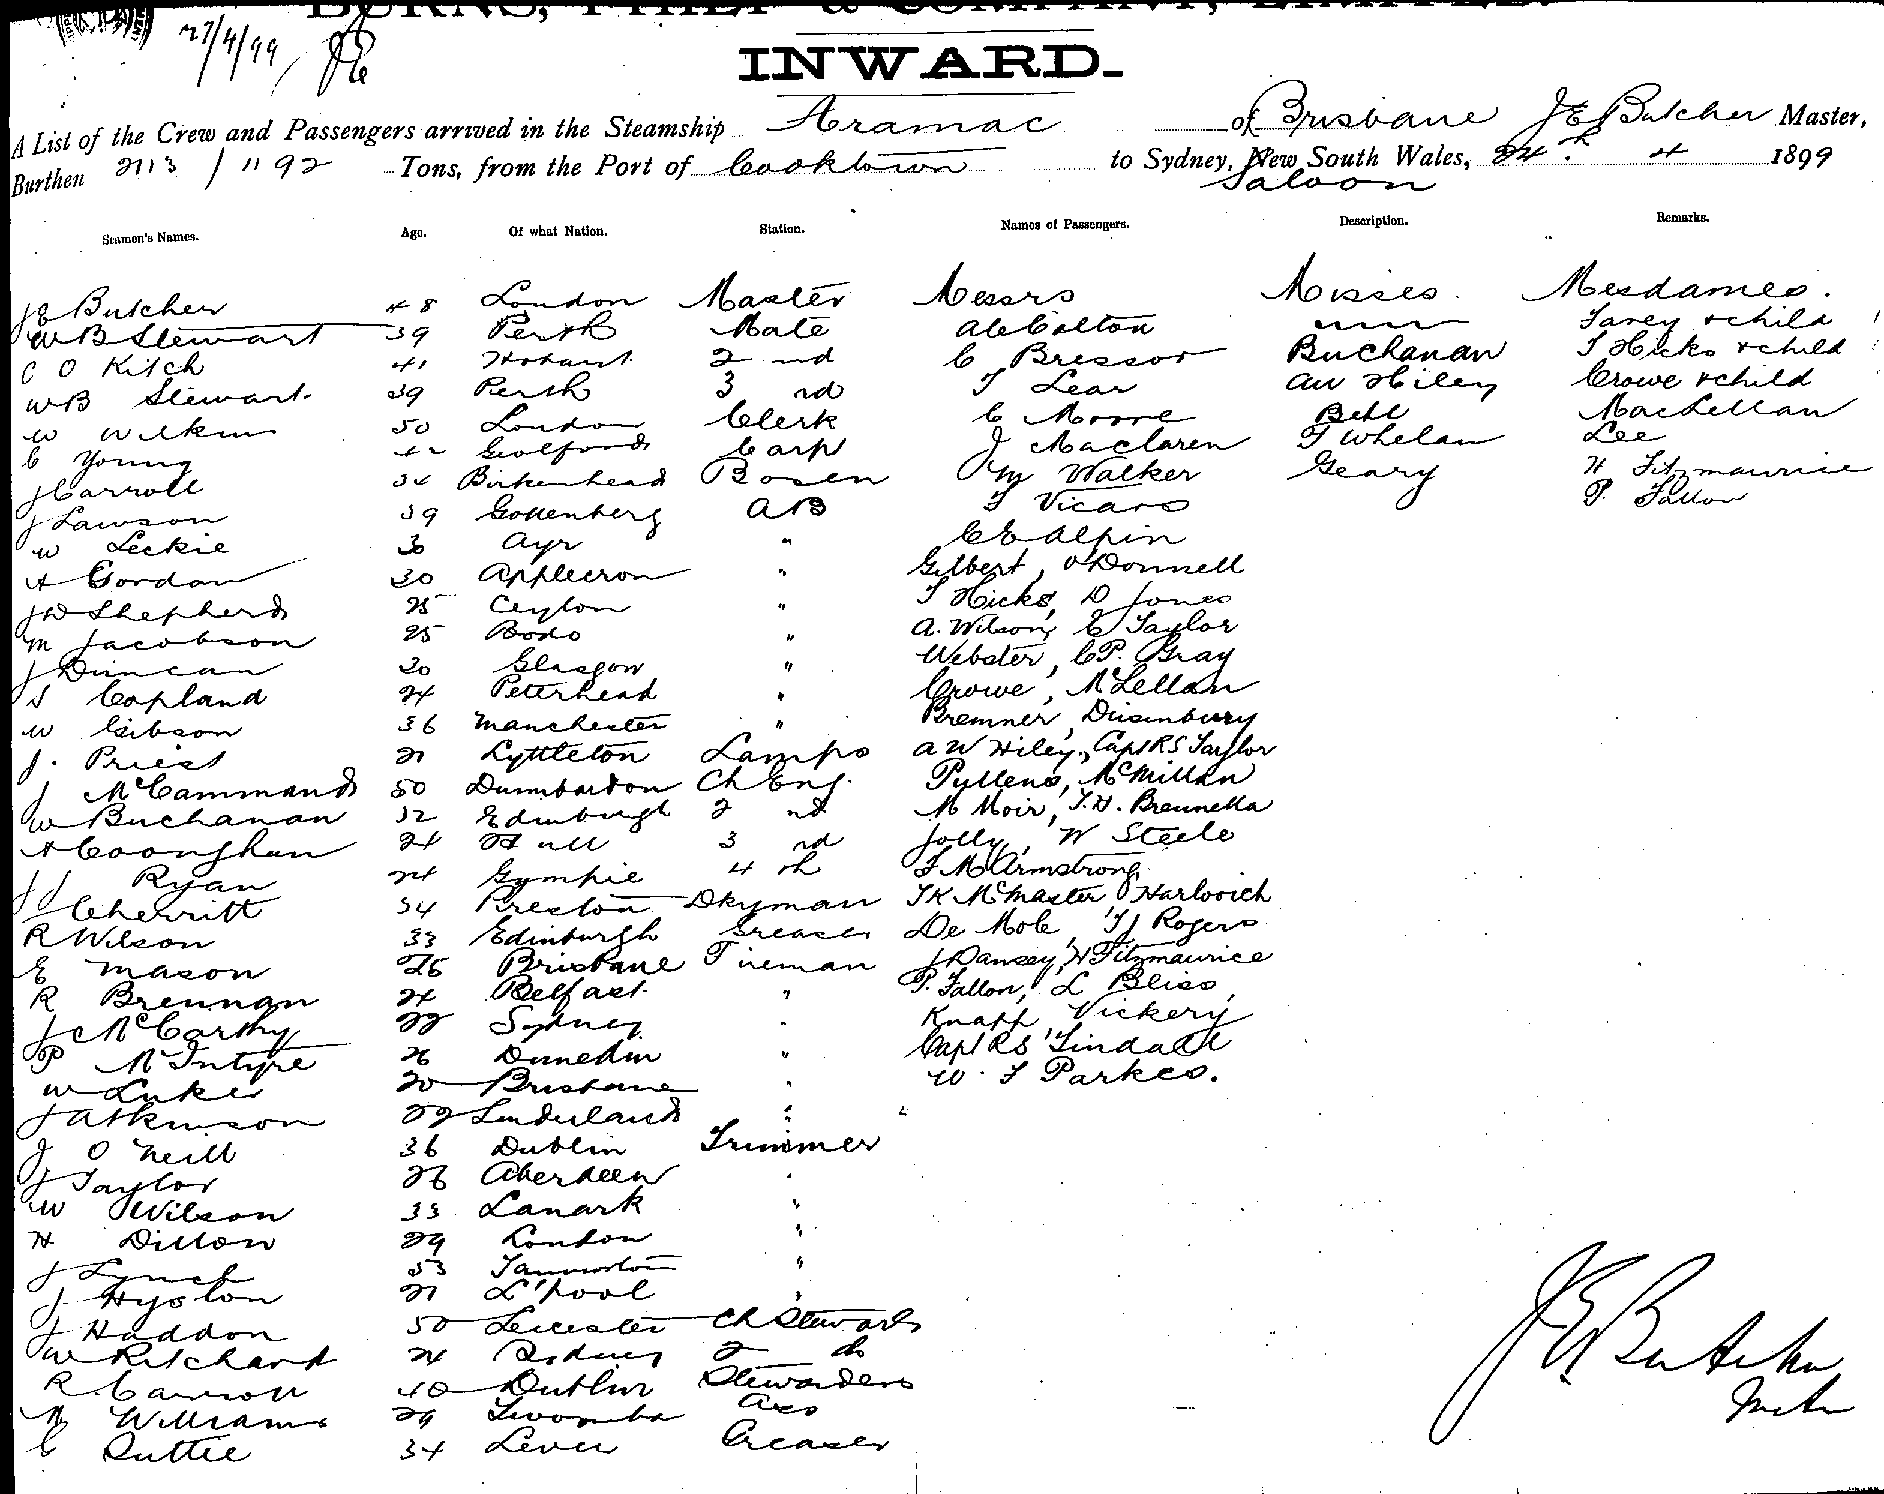 BURNS, PHILP & COMPANY, LIMITED.
27/4/99
INWARD.
A List of the Crew and Passengers arrived in the Steamship Aramac of Brisbane J E Butcher Master,
Burthen 2113 / 1192 Tons, from the Port of Cooktown to Sydney, New South Wales, 24th 4 1899
Saloon
Seamen's Names. Age. Of what Nation. Station. Names of Passengers. Description. Remarks.
J E Butcher 48 London Master Messrs Misses. Mesdames.
W B Stewart 39 Perth Mate Colton Tarey & child
C O Kitch 41 Hobart 2nd C Bressor Buchanan T Hicks & child
W B Stewart 39 Perth 3rd T Lear A W Hiley Crowe & child
W Wilkins 50 London Clerk C Moore Bell MacLellan
C Young 42 Carp J Maclaren T Whelan Lee
J Carroll 34 Birkenhead Bosen M Walker Geary H Fitzmaurice
J Lawson 39 Gottenberg AB T Vicars P. Fallon
W Leckie 30 Ayr " C E Alpin
A Gordon 30 Applecron " Gilbert, O'Donnell
J D Shepherd 25 Ceylon " T Hicks, D Jones
M Jacobson 25 Bodo " A. Wilson, C Taylor
J Duncan 30 Glasgow " Webster, C P. Gray
S Copland 24 Peterhead " Crowe, McLellan
W Gibson 36 Manchester " Bremner, Dusenbury
J. Priest 21 Lyttleton Lamps A W Hiley, Capt R S Taylor
J McCammand 50 Dumbarton Ch Eng. Pullens, McMillan
W Buchanan 32 Edinburgh 2nd M Moir, T. H. Brennella
A Coonghan 24 Hull 3rd Jolly, W Steele
J J Ryan 24 Gympie 4th F M Armstrong
J Cherritt 34 Preston Dkyman T K McMaster, Harlovich
R Wilson 33 Edinburgh Greaser De Mole, T J Rogers
E Mason 26 Brisbane Fireman J Dansey, H Fitzmaurice
R Brennan 24 Belfast " P. Fallon, L Bliss,
J McCarthy 22 Sydney " Knapp, Vickery
P McIntyre 26 Dunedin " Capt R S Lindall
W Luke 20 Brisbane " W. T Parkes.
J Atkinson 29 Sunderland "
J O'Neill 36 Dublin Trimmer
J Taylor 26 Aberdeen "
W Wilson 33 Lanark "
H Dillon 29 London "
J Lynch 53 Tamworth "
J Hyslon 21 L'pool "
J Haddon 50 Leicester Ch Steward
W Ritchard 24 Sydney 2 do
R Carroll 40 Dublin Stewardess
M Williams 29 Toowomba Ass
C Suttie 34 Leven Greaser
J E Butcher